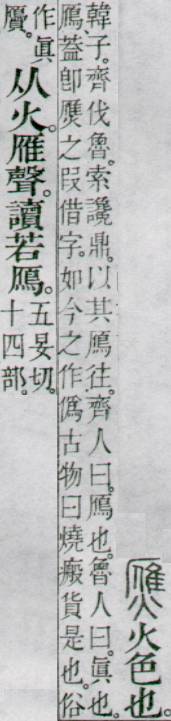 火色也。
韓子。齊伐魯。索讒鼎。以其鴈往。齊人曰。鴈也。魯人曰。眞也。
鴈、蓋卽之叚借字。如今之作僞古物曰燒瘢貨是也。俗
作眞
贗。
从火。雁聲。讀若鴈。
五晏切。
十四部。